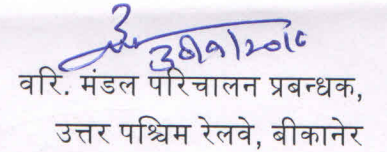 वरि. मंडल परिचालन प्रबन्धक,
उत्तर पश्चिम रेलवे, बीकानेर